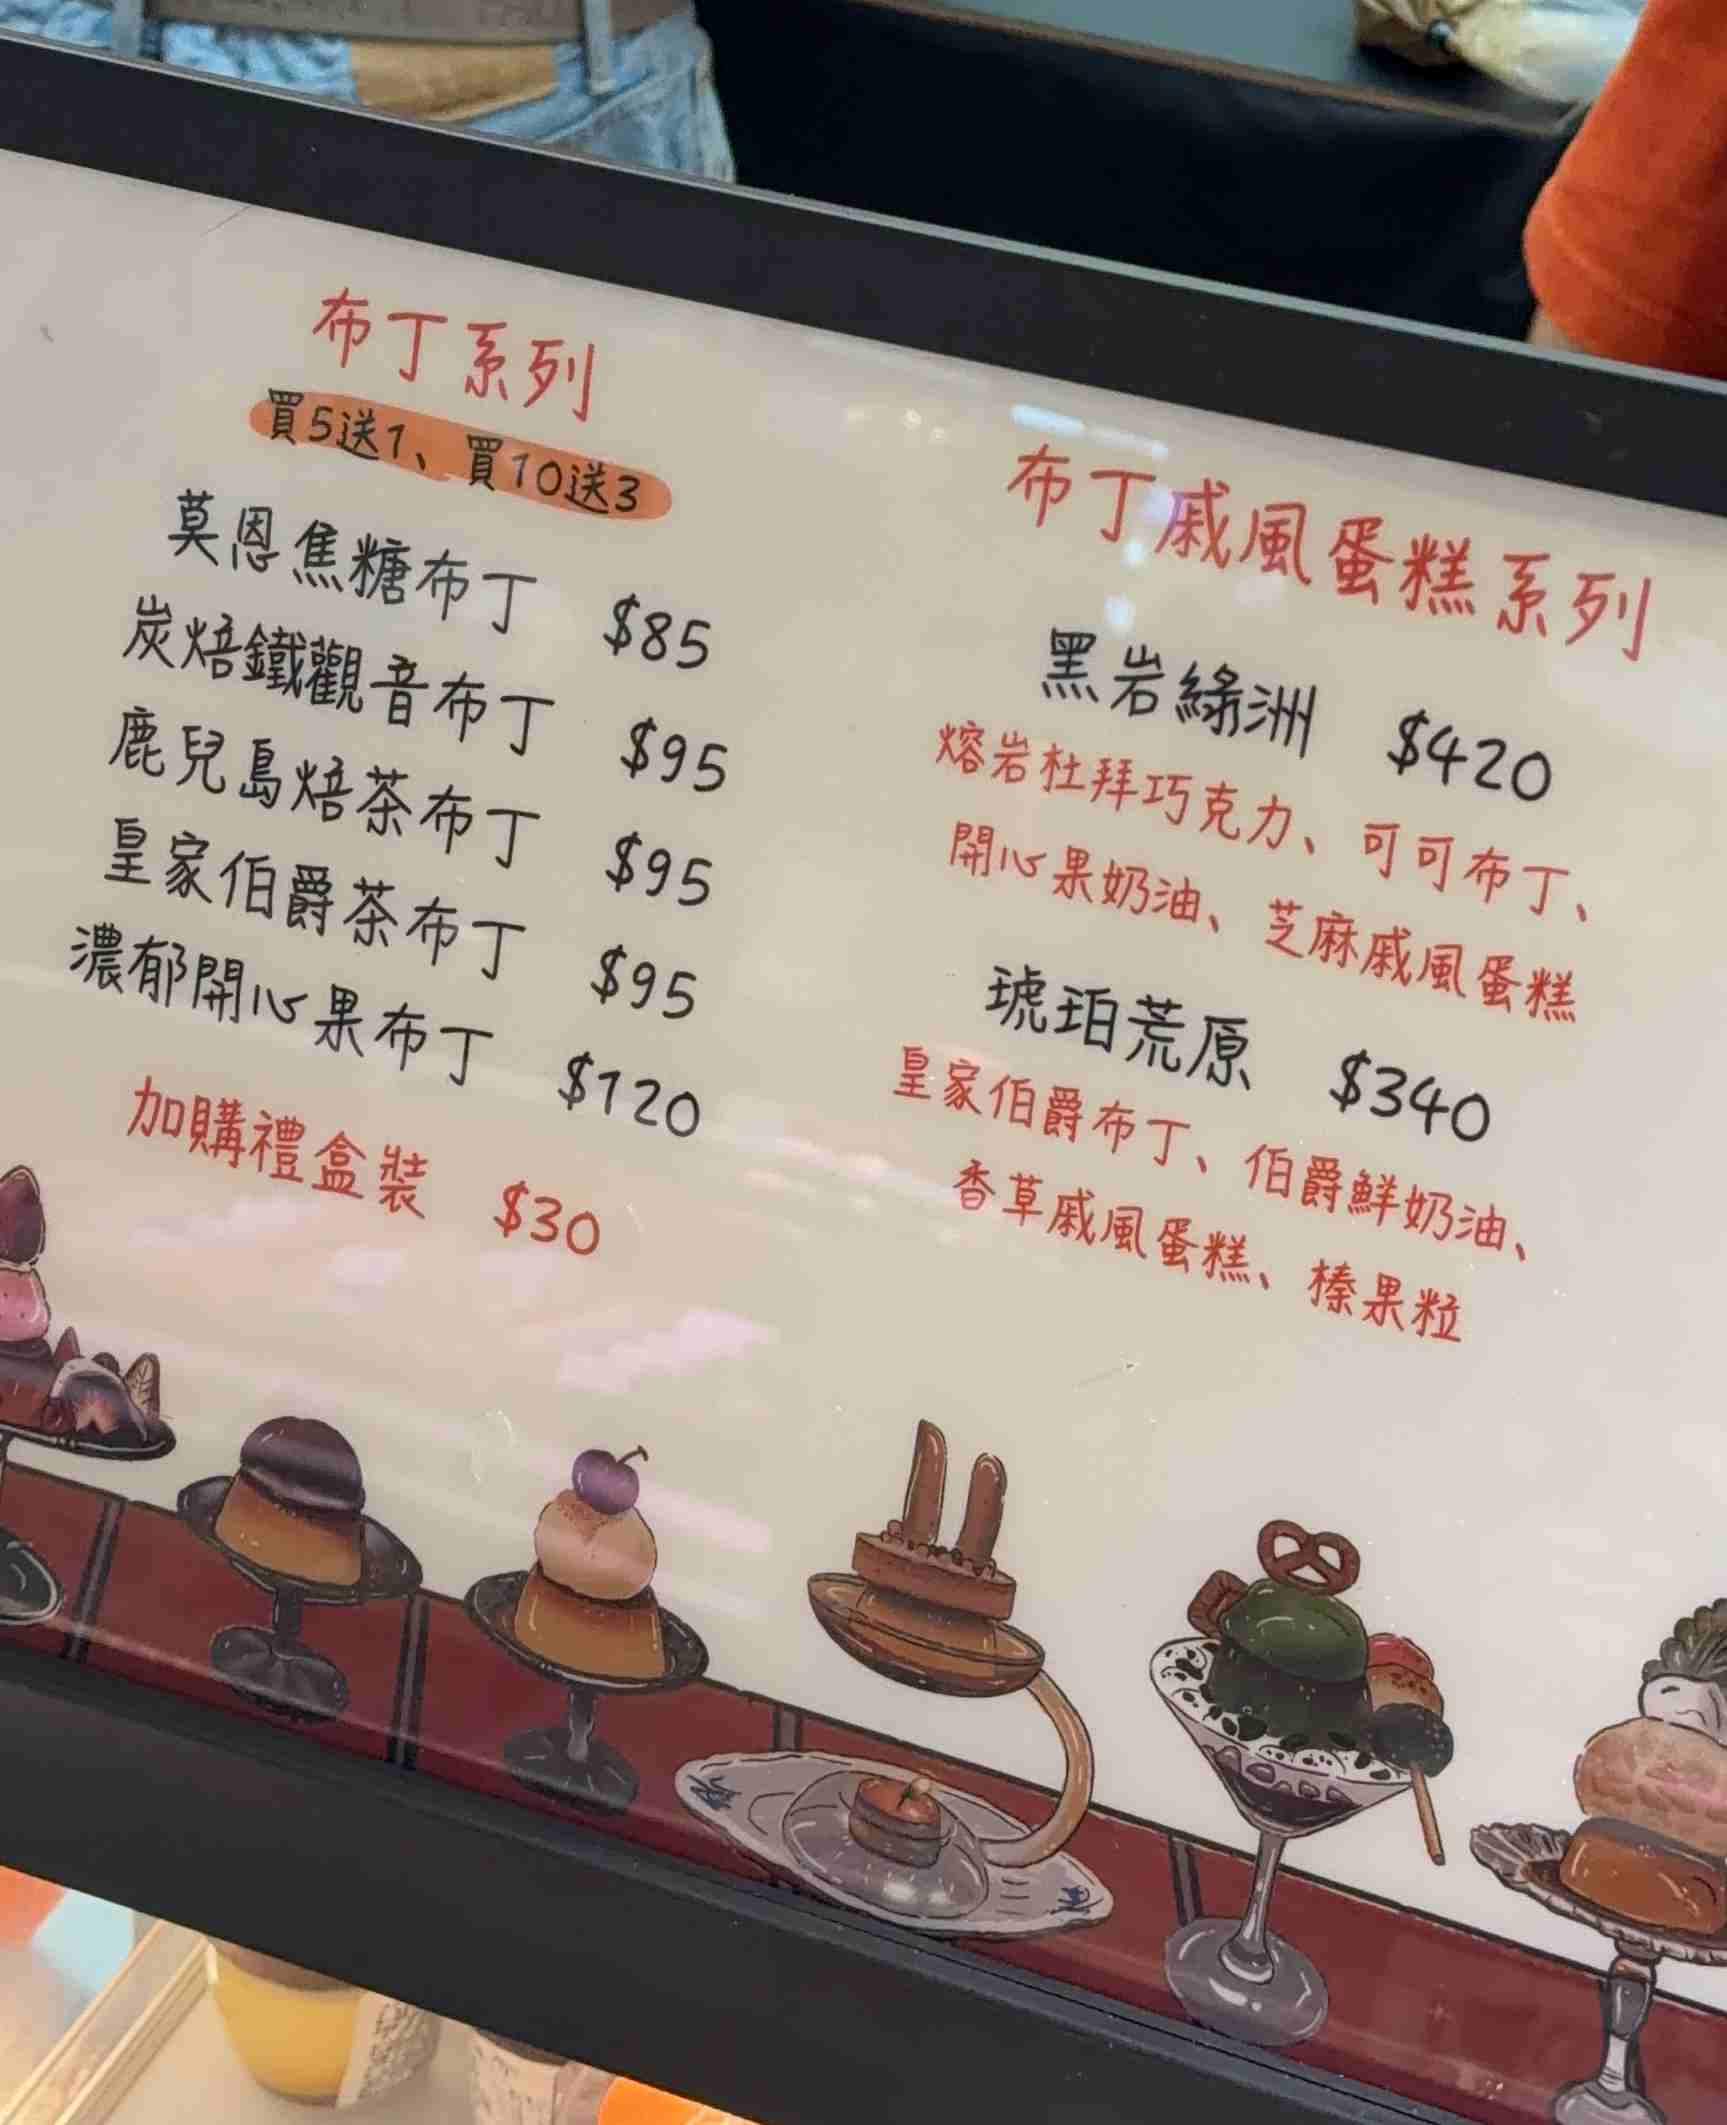 布丁系列
買5送1、買10送3
莫恩焦糖布丁 $85
炭焙鐵觀音布丁 $95
鹿兒島焙茶布丁 $95
皇家伯爵茶布丁 $95
濃郁開心果布丁 $120
加購禮盒裝 $30
布丁戚風蛋糕系列
黑岩綠洲 $420
熔岩杜拜巧克力、可可布丁、
開心果奶油、芝麻戚風蛋糕
琥珀荒原 $340
皇家伯爵布丁、伯爵鮮奶油、
香草戚風蛋糕、榛果粒